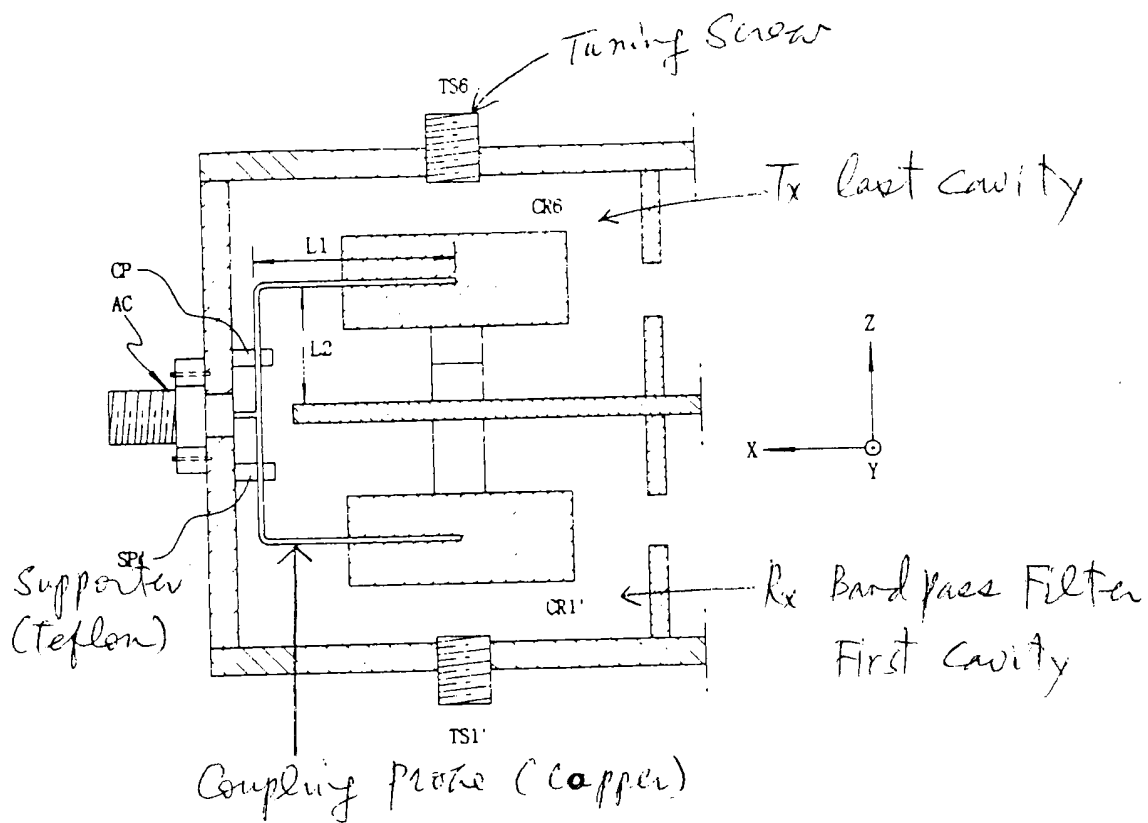 Tuning Screw
TS6
Tx last cavity
CR6
L1
CP
AC
L2
Z
X
Y
SP
Supporter
(Teflon)
CR1'
Rx Bandpass Filter
First Cavity
TS1'
Coupling Probe (Copper)